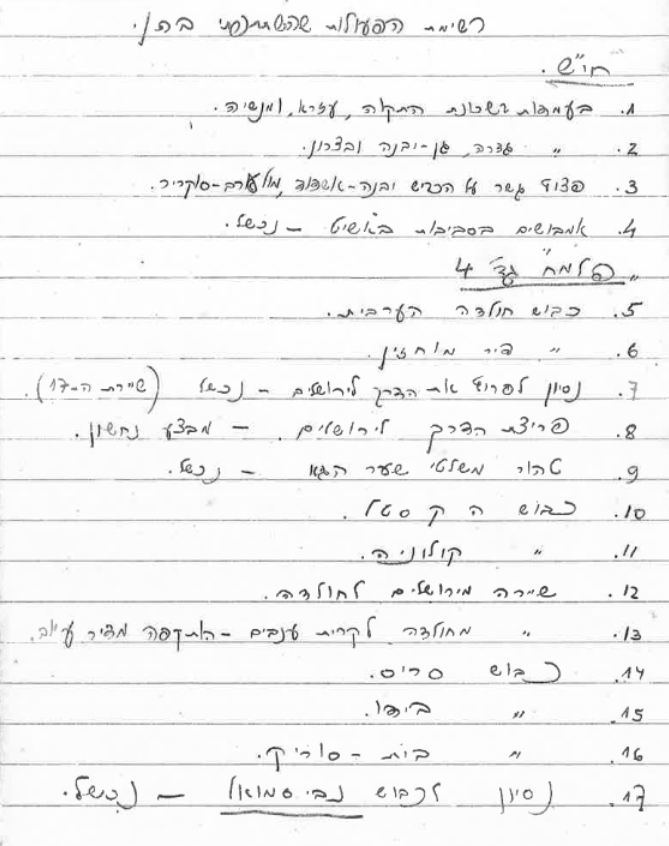 רשימת הפעולות שהשתתפתי בהן.
חי"ש.
1. בעמדות בשכונת התקוה, עזרא, ומנשיה.
2. " גדרה, גן-יבנה ובצרון.
3. פצוץ גשר על הכביש יבנה-אשדוד, מול ערב-סוקריר.
4. אמבושים בסביבות באשיט - נכשל.
"פלמח" גד' 4
5. כבוש חולדה הערבית.
6. " דיר מוחזין.
7. נסיון לפרוץ את הדרך לירושלים - נכשל (שיירת ה-17).
8. פריצת הדרך לירושלים. - מבצע נחשון.
9. טהור משלטי שער הגיא - נכשל.
10. כבוש הקסטל.
11. " קולוניה.
12. שיירה מירושלים לחולדה.
13. " מחולדה לקרית ענבים - התקפה מדיר עיוב.
14. כבוש סריס.
15. " בידו.
16. " בית-סוריק.
17. נסיון לכבוש נבי סמואל - נכשל.